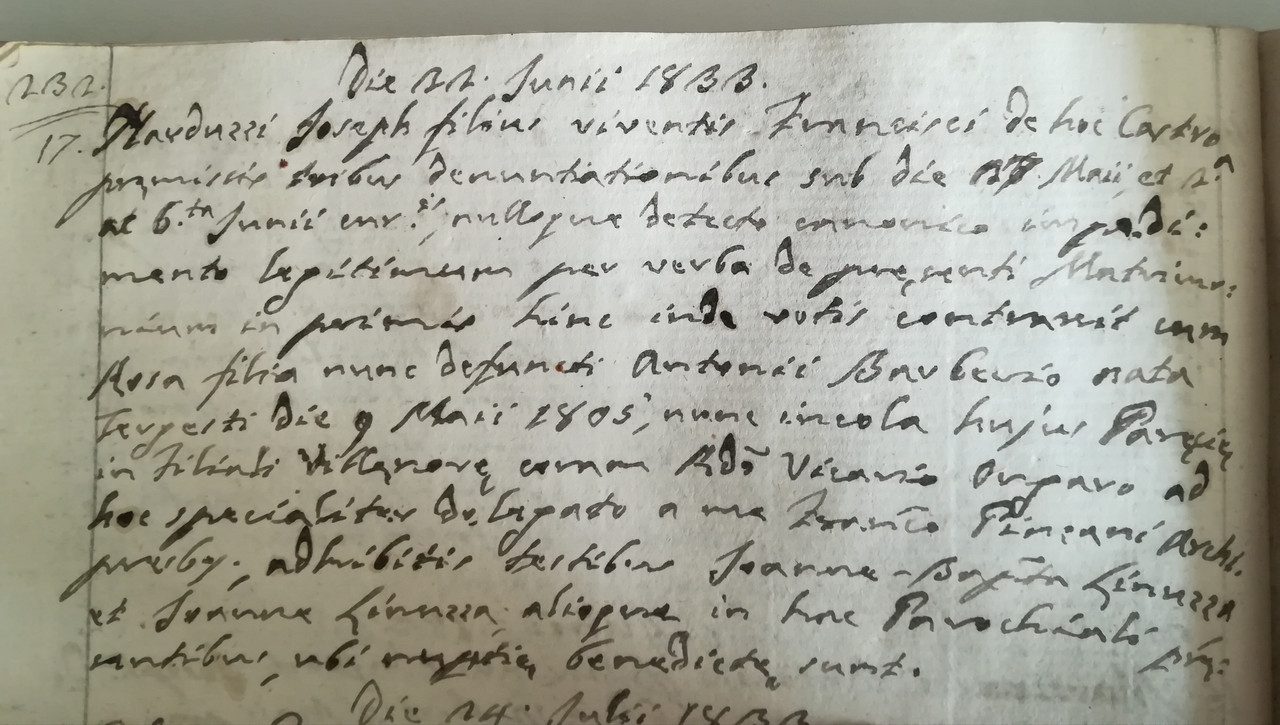 232.
Die 22. Junii 1833.
17. Narduzzi Joseph filius viventis Francisci de hoc Castro
pręmissis tribus denuntiationibus sub die Maii, et 2.ª
ac 6.ta Junii cur.tis, nulloque detecto canonico impędi:
mento legitimum per verba de pręsenti Matrimo:
nium in primis hinc inde votis contraxit cum
Rosa filia nunc defuncti Antonii Barberio nata
Tergesti die 9 Maii 1805, nunc incola hujus Paręcię
in Filiali Villęnovę coram Rdō Vicario Ongaro ad
hoc specialiter delegato a me Franc̄o Pinzani Archi.
presby., adhibitis testibus Joanne-Bap̄ta Linuzza
et Joanne Linuzza, aliisque in hac Parochiali prę:
sentibus, ubi nuptię benedictę sunt.
Die 24. Julii 1833